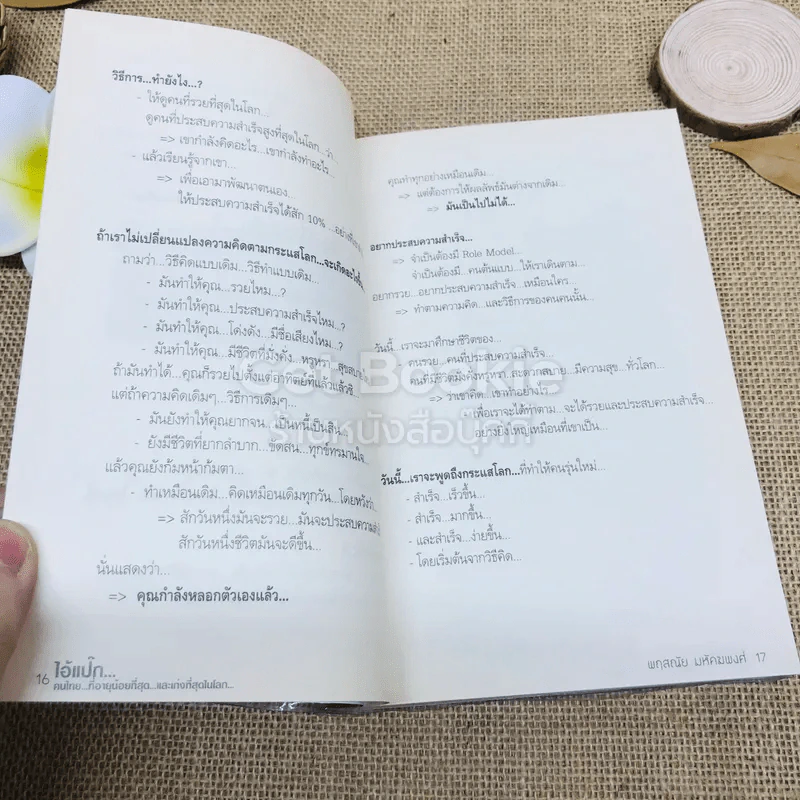 วิธีการ...ทำยังไง...?
- ให้ดูคนที่รวยที่สุดในโลก...
ดูคนที่ประสบความสำเร็จสูงที่สุดในโลก...ว่า...
=> เขากำลังคิดอะไร...เขากำลังทำอะไร...
- แล้วเรียนรู้จากเขา...
=> เพื่อเอามาพัฒนาตนเอง...
ให้ประสบความสำเร็จได้สัก 10%
ถ้าเราไม่เปลี่ยนแปลงความคิดตามกระแสโลก...จะเกิดอะไรขึ้น
ถามว่า...วิธีคิดแบบเดิม...วิธีทำแบบเดิม...
- มันทำให้คุณ...รวยไหม...?
- มันทำให้คุณ...ประสบความสำเร็จไหม...?
- มันทำให้คุณ...โด่งดัง...มีชื่อเสียงไหม...?
- มันทำให้คุณ...มีชีวิตที่มั่งคั่ง...หรูหรา
ถ้ามันทำได้...คุณก็รวยไปตั้งแต่อาทิตย์ที่แล้วแล้วซิ...
แต่ถ้าความคิดเดิมๆ...วิธีการเดิมๆ...
- มันยังทำให้คุณยากจน...เป็นหนี้เป็นสิน...
- ยังมีชีวิตที่ยากลำบาก...ขัดสน...ทุกข์ทรมานใจ...
แล้วคุณยังก้มหน้าก้มตา...
- ทำเหมือนเดิม...คิดเหมือนเดิมทุกวัน...โดยหวังว่า...
=> สักวันหนึ่งมันจะรวย...มันจะประสบความสำเร็จ
สักวันหนึ่งชีวิตมันจะดีขึ้น...
นั่นแสดงว่า...
=> คุณกำลังหลอกตัวเองแล้ว...
16 ไอ้แป๊ก...
คนไทย...ที่อายุน้อยที่สุด...และเก่งที่สุดในโลก...
คุณทำทุกอย่างเหมือนเดิม...
=> แต่ต้องการให้ผลลัพธ์มันต่างจากเดิม...
=> มันเป็นไปไม่ได้...
อยากประสบความสำเร็จ...
=> จำเป็นต้องมี Role Model...
จำเป็นต้องมี...คนต้นแบบ...ให้เราเดินตาม...
อยากรวย...อยากประสบความสำเร็จ...เหมือนใคร...
=> ทำตามความคิด...และวิธีการของคนคนนั้น...
วันนี้...เราจะมาศึกษาชีวิตของ...
คนรวย...คนที่ประสบความสำเร็จ...
คนที่มีชีวิตมั่งคั่งหรูหรา สะดวกสบาย...มีความสุข...ทั่วโลก...
=> ว่าเขาคิด...เขาทำอย่างไร...
เพื่อเราจะได้ทำตาม...จะได้รวยและประสบความสำเร็จ...
อย่างยิ่งใหญ่เหมือนที่เขาเป็น...
วันนี้...เราจะพูดถึงกระแสโลก...ที่ทำให้คนรุ่นใหม่...
- สำเร็จ...เร็วขึ้น...
- สำเร็จ...มากขึ้น...
- และสำเร็จ...ง่ายขึ้น...
- โดยเริ่มต้นจากวิธีคิด...
พฤสณัย มหัคฆพงศ์ 17
Get Bookie
ร้านหนังสือบุ๊กกี้